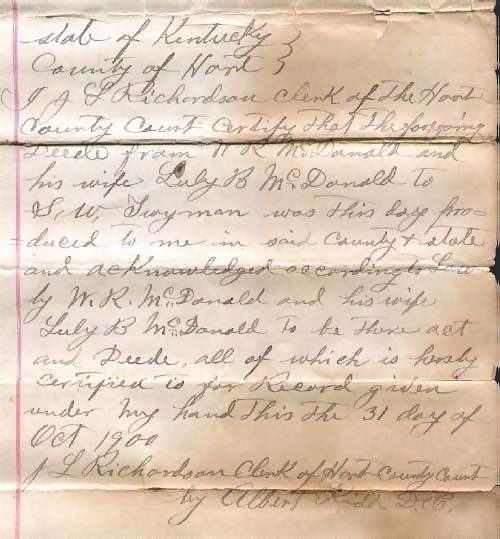 state of Kentucky }
County of Hart }
I J L Richardson Clerk of the Hart
County Court Certify that the foregoing
Deede from W R McDonald and
his wife Luly B McDonald to
S. W. Twyman was this day pro=
=duced to me in said County & state
and acknowledged according to Law
by W. R. McDonald and his wife
Luly B McDonald to be there act
and Deede, all of which is hereby
Certified is for Record given
under my hand this the 31 day of
Oct 1900
J L Richardson Clerk of Hart County Court
by Albert Kidd D.C.